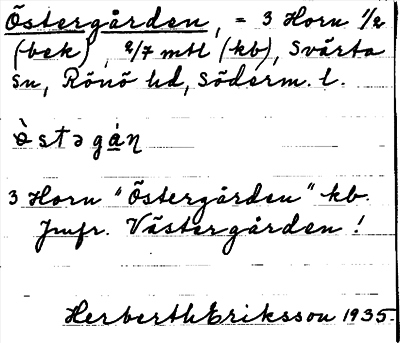 Östergården, = 3 Horn 1/2
(bek), 2/7 mtl (kb), Svärta
sn, Rönö hd, Söderm. l.
3 Horn "Östergården" kb.
Jmfr. Västergården!
Herberth Eriksson 1935.